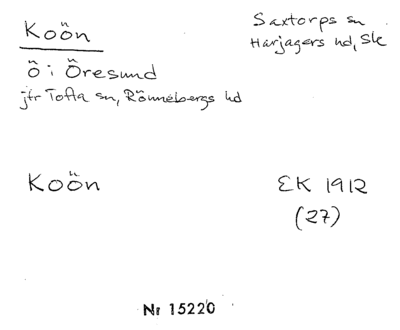 Koön
Saxtorps sn
Harjagers hd, Ske
Ö i Öresund
jfr Tofta sn, Rönnebergs hd
Koön
EK 1912
(27)
Nr 15220